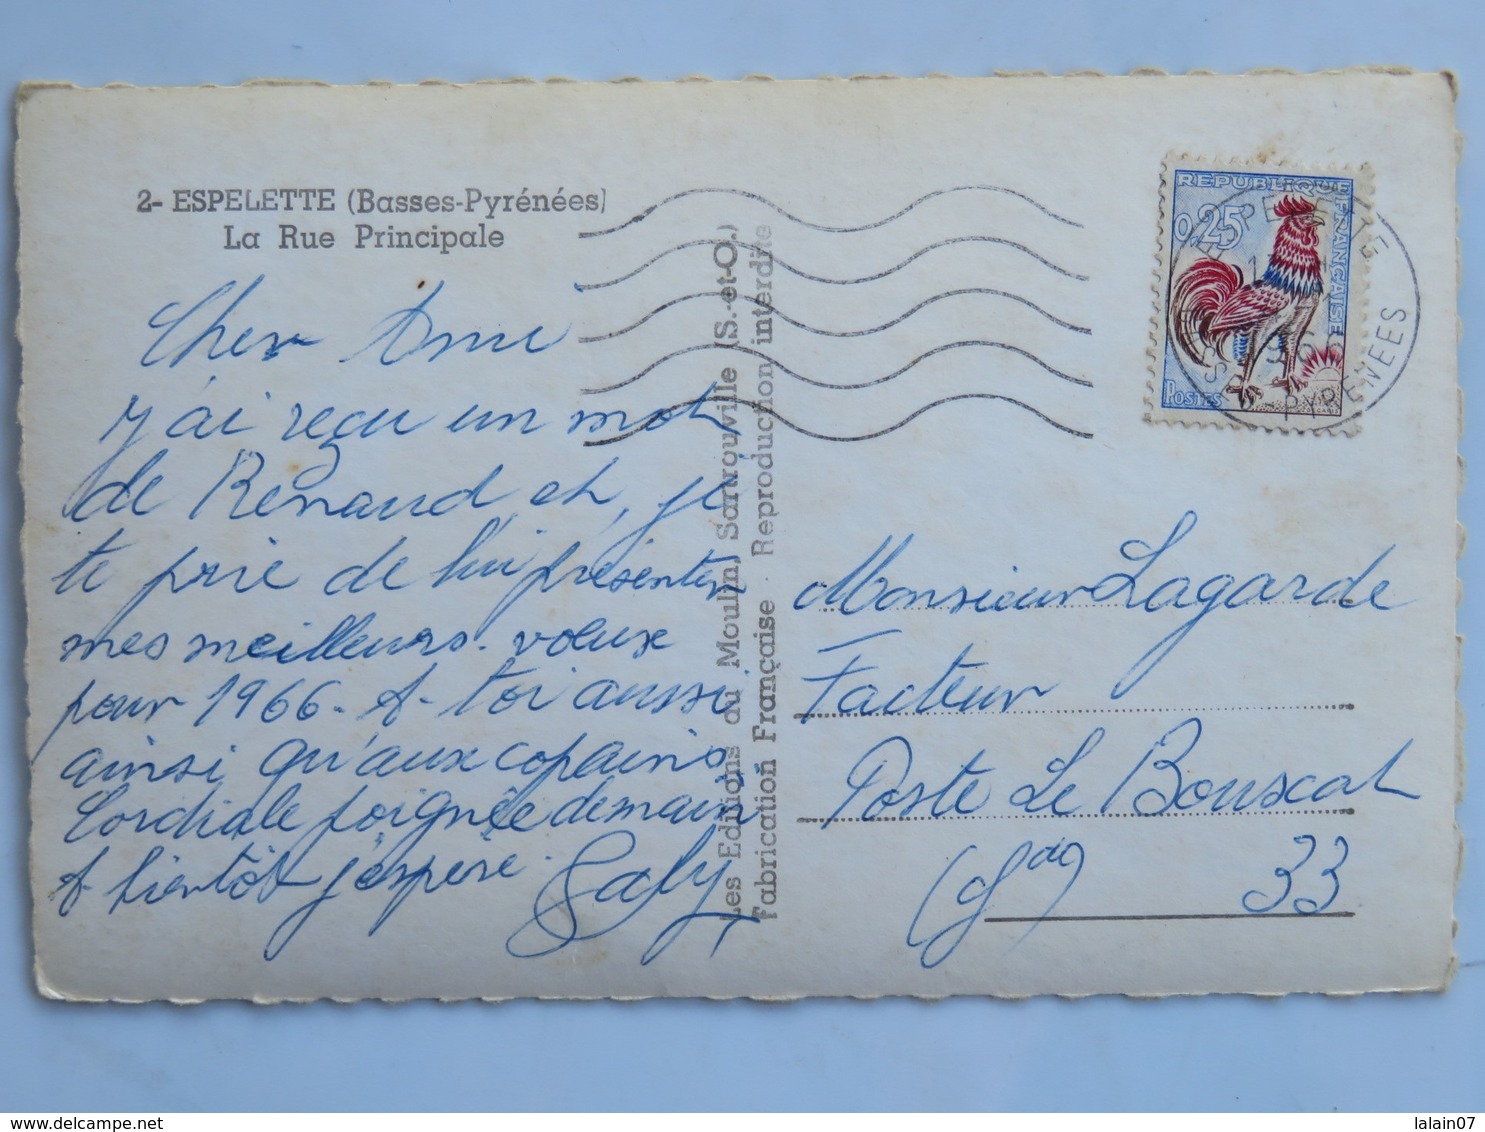 2- ESPELETTE (Basses-Pyrénées)
La Rue Principale
Cher Ami
J'ai reçu un mot
de Renaud et, je
te prie de lui présenter
mes meilleurs vœux
pour 1966. A toi aussi
ainsi qu'aux copains
Cordiale poignée de main
A bientôt j'espère.
Les Editions du Moulin, Sartrouville (S.-et-O.)
Fabrication Française Reproduction interdite
REPUBLIQUE FRANÇAISE
0,25
POSTES
ESPELETTE
PYRENEES
Monsieur Lagarde
Facteur
Poste Le Bouscat
(Gde) 33
lalain07